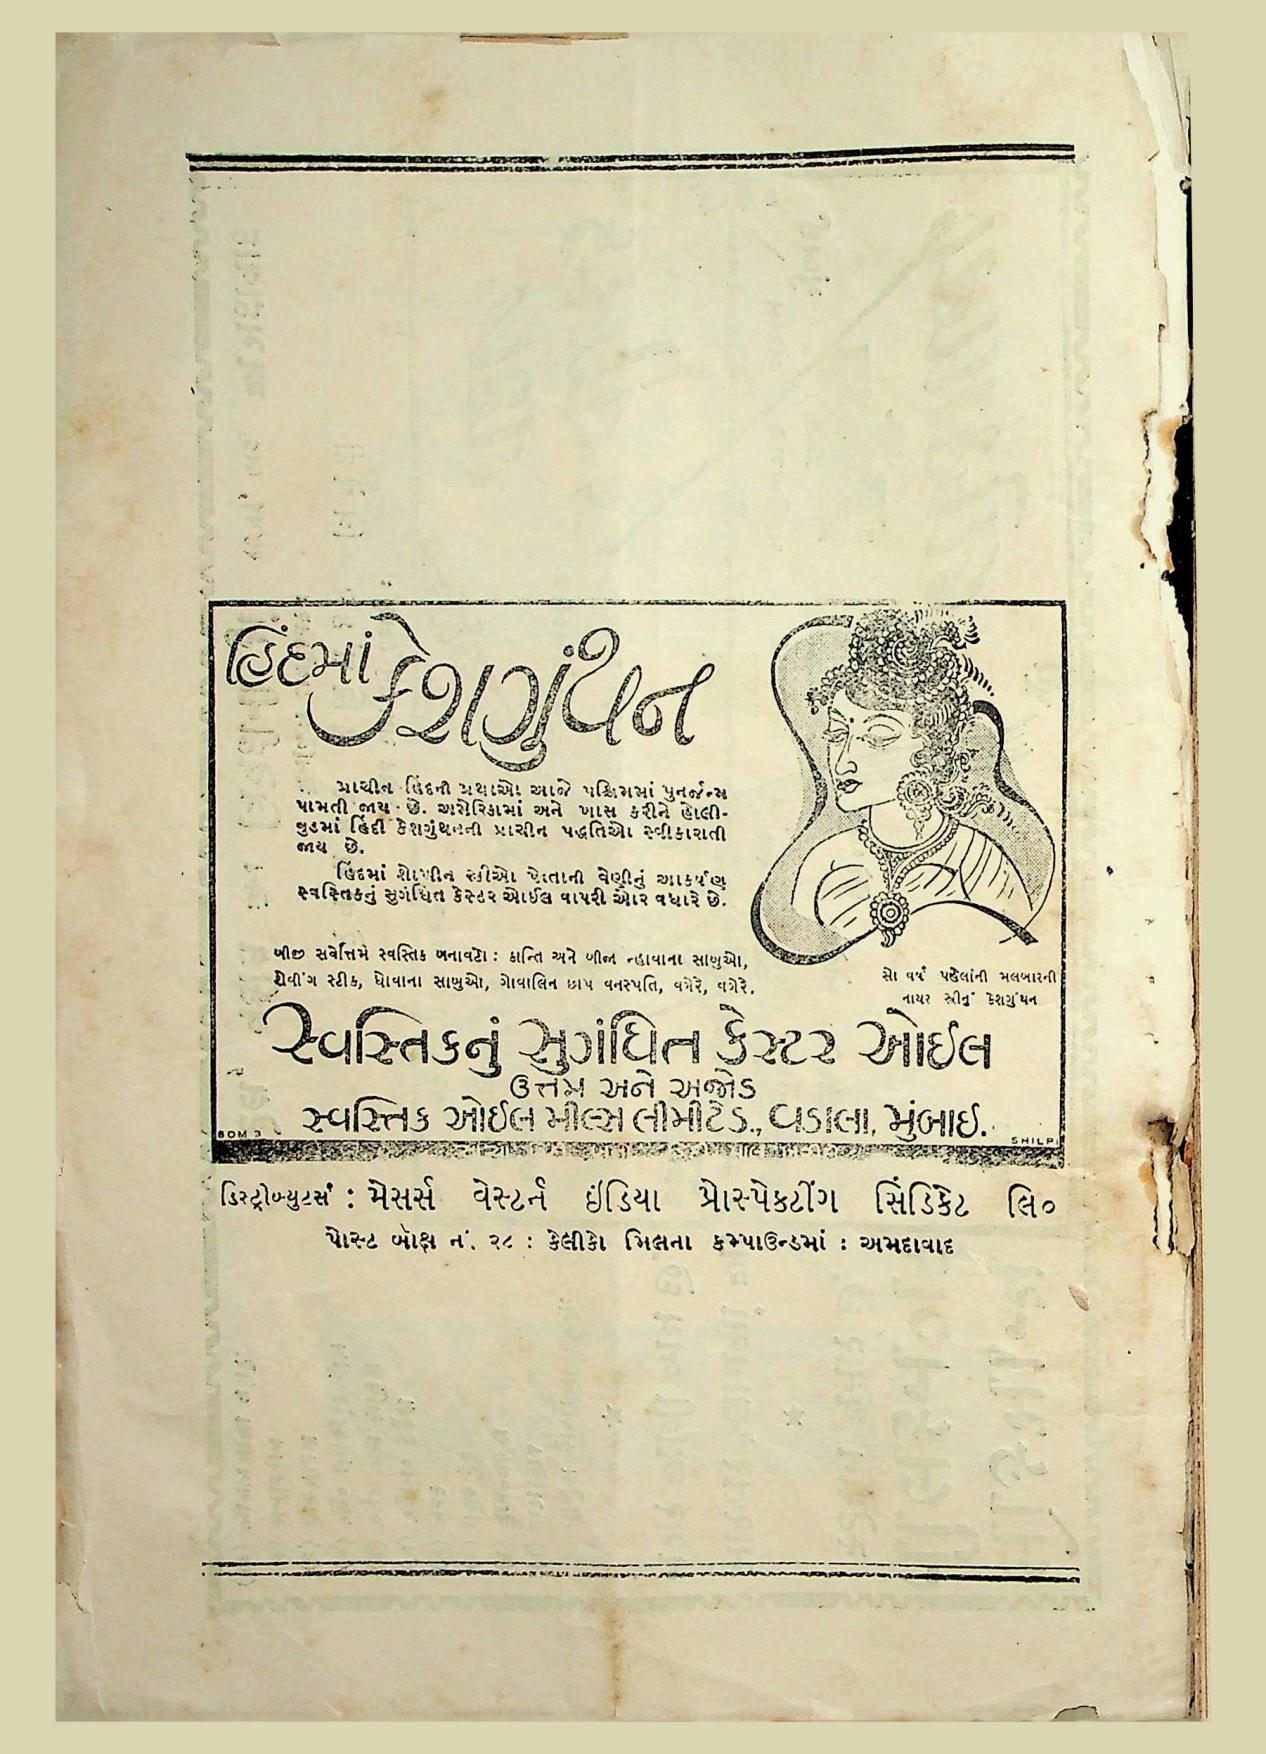 હિંદમાં
કેશગુંથન
પ્રાચીન હિંદની પ્રથાઓ આજે પશ્ચિમમાં પુનર્જન્મ
પામતી જાય છે. અમેરિકામાં અને ખાસ કરીને હોલી-
વુડમાં હિંદી કેશગુંથનની પ્રાચીન પદ્ધતિઓ સ્વીકારાતી
જાય છે.
હિંદમાં શોખીન સ્ત્રીઓ પોતાની વેણીનું આકર્ષણ
સ્વસ્તિકનું સુગંધિત કેસ્ટર ઓઈલ વાપરી ઓર વધારે છે.
બીજી સર્વોત્તિમ સ્વસ્તિક બનાવટો : કાન્તિ અને બીજા ન્હાવાના સાબુઓ,
શેવીંગ સ્ટીક, ધોવાના સાબુઓ, ગોવાલિન છાપ વનસ્પતિ, વગેરે, વગેરે.
સો વર્ષ પહેલાંની મલબારની
નાયર સ્ત્રીનું કેશગુંથન
સ્વસ્તિકનું સુગંધિત કેસ્ટર ઓઈલ
ઉત્તમ અને અજોડ
સ્વસ્તિક ઓઈલ મીલ્સ લીમીટેડ., વડાલા, મુંબાઈ.
BOM 3 SHILPI
ડિસ્ટ્રીબ્યુટર્સ : મેસર્સ વેસ્ટર્ન ઇંડિયા પ્રોસ્પેકટીંગ સિંડિકેટ લિ૦
પોસ્ટ બૉક્ષ નં. ૨૮ : કેલીકો મિલના કમ્પાઉન્ડમાં : અમદાવાદ